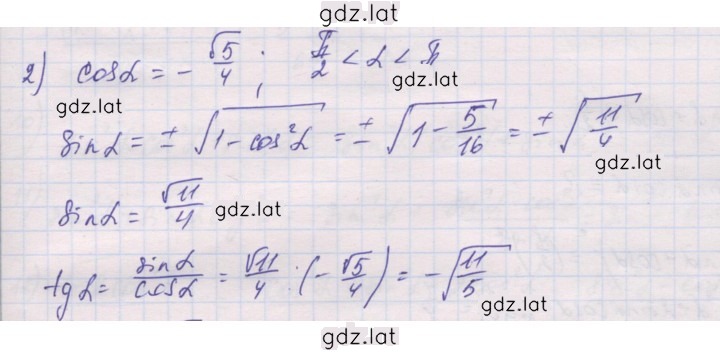 gdz.lat
2) cosα = - √5/4 ; π/2 < α < π
gdz.lat
gdz.lat
sinα = ± √(1 - cos²α) = ± √(1 - 5/16) = ± √(11/4)
gdz.lat
sinα = √11/4
gdz.lat
tgα = sinα/cosα = √11/4 : (- √5/4) = - √(11/5)
gdz.lat
gdz.lat